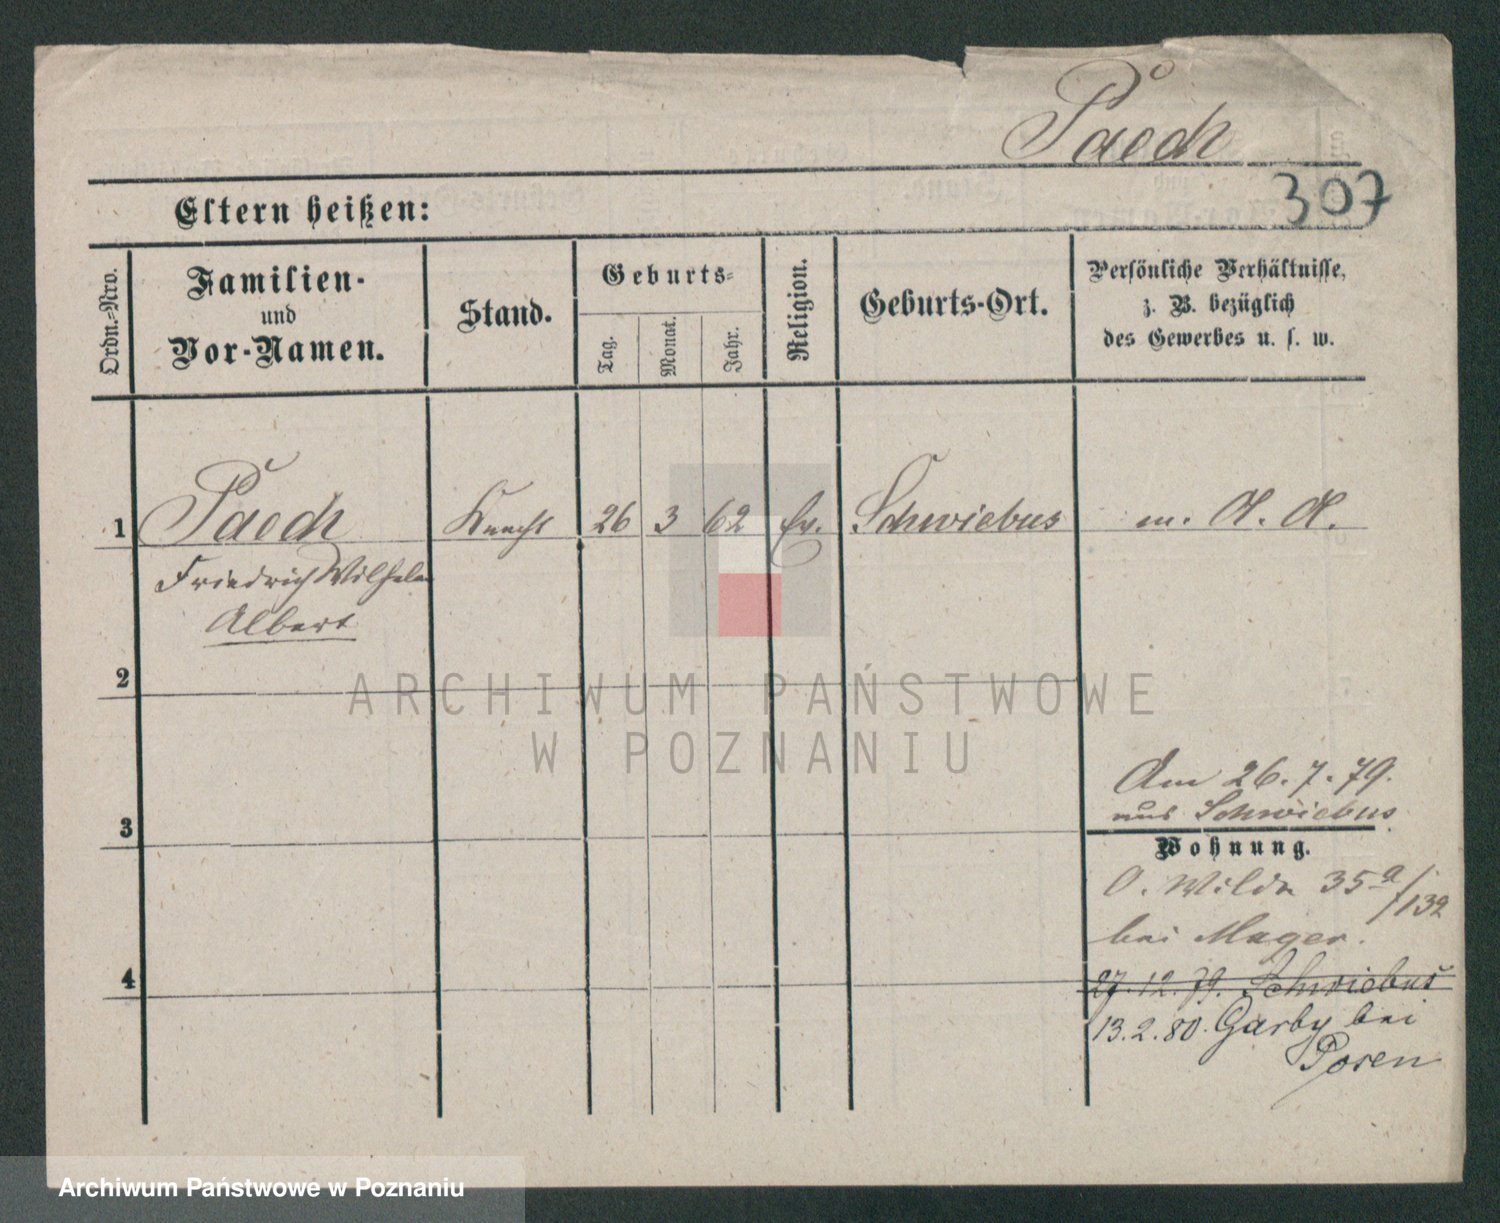 Paech
307
Eltern heißen:
Ordn.-Nro.
Familien-
und
Vor-Namen.
Stand.
Geburts-
Tag.
Monat.
Jahr.
Religion.
Geburts-Ort.
Persönliche Verhältnisse,
z. B. bezüglich
des Gewerbes u. s. w.
1 Paech Knecht 26 3 62 Ev. Schwiebus m. A. A.
Friedrich Wilhelm
Albert
2
ARCHIWUM PAŃSTWOWE
W POZNANIU
Am 26.7.79.
aus Schwiebus
3
Wohnung.
O. Wilda 35a/132
bei Mager.
4
27.12.79. Schwiebus
13.2.80. Garby bei
Posen
Archiwum Państwowe w Poznaniu